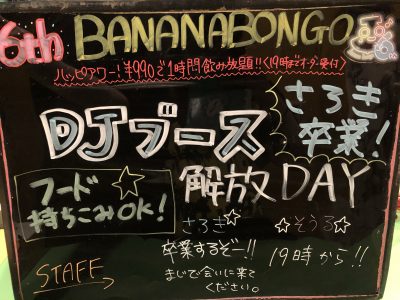 6th BANANABONGO
ハッピアワー!¥990で1時間飲み放題!!<19時までオーダー受付>
さろき
卒業!
DJブース
解放DAY
フード☆
持ちこみOK!
さろき☆
卒業するぞー!!
まじで会いに来て
ください。
☆そうる☆
19時から!!
STAFF→